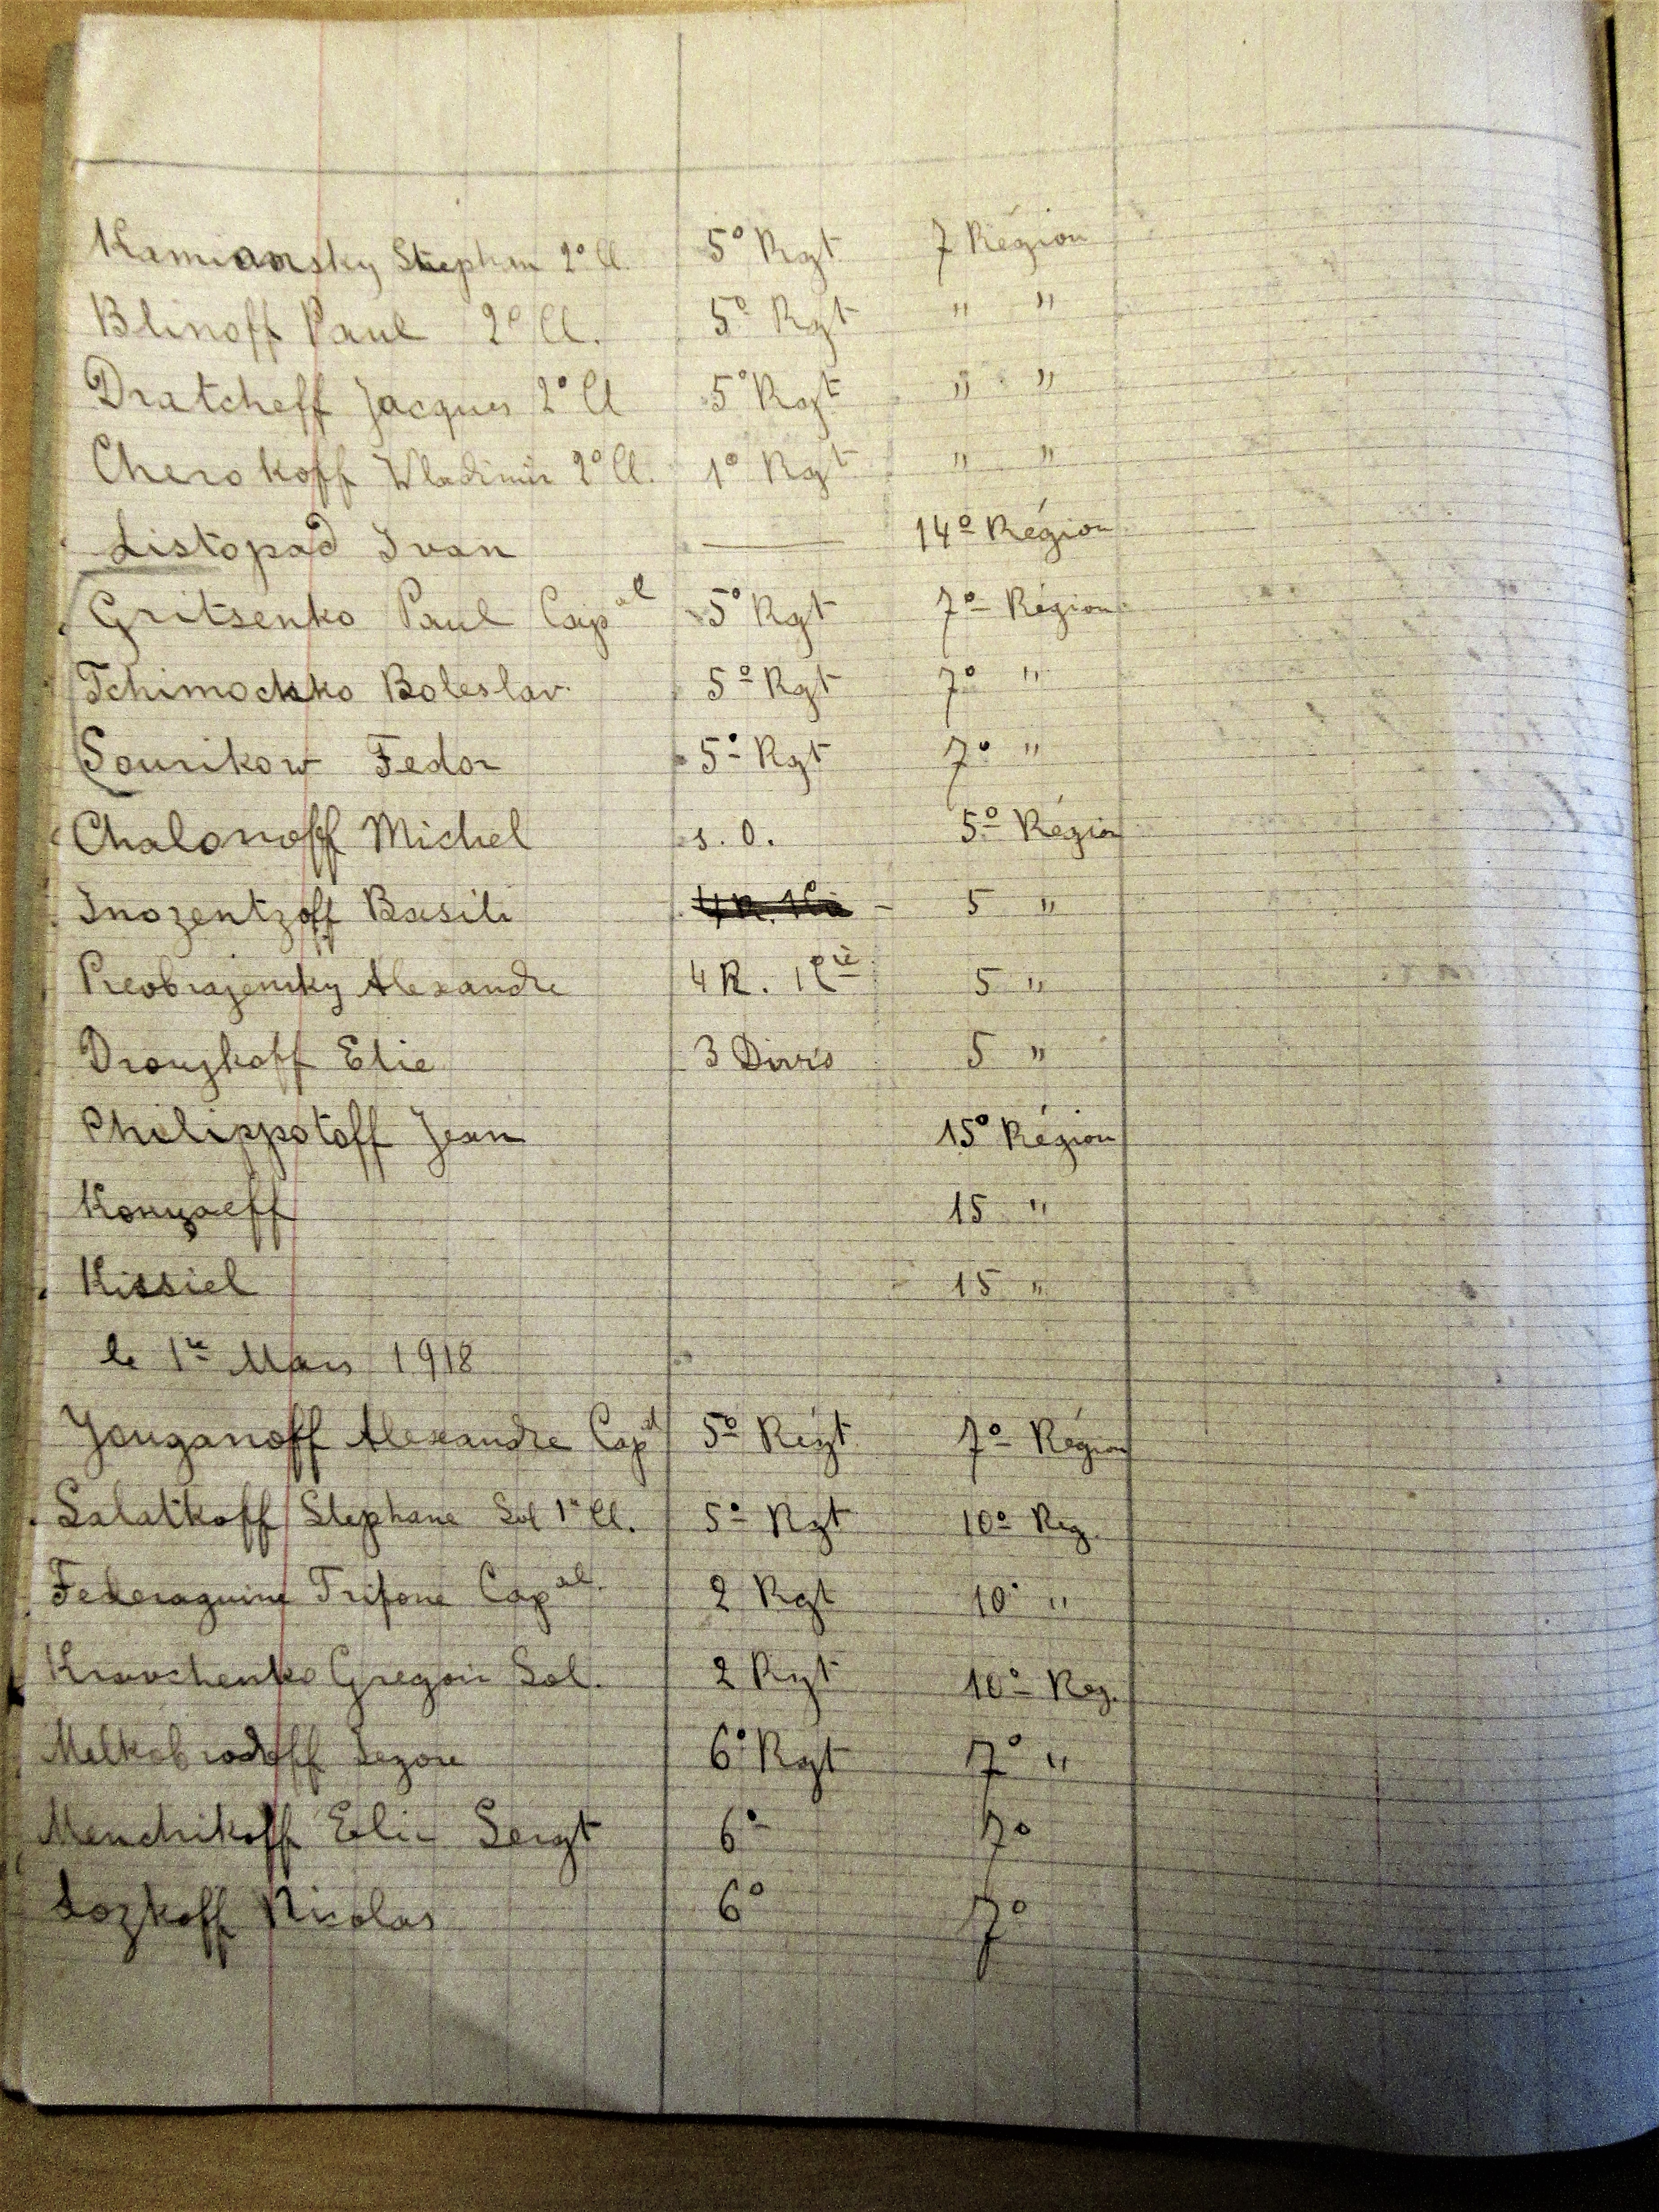 Kamiansky Stephan 2° Cl. 5° Rgt 7 Région
Blinoff Paul 2° Cl. 5° Rgt " "
Dratcheff Jacques 2° Cl 5° Rgt " "
Cherokoff Wladimir 2° Cl. 1° Rgt " "
Listopad Ivan — 14° Région
Gritsenko Paul Capal 5° Rgt 7° Région
Tchimochko Boleslav 5° Rgt 7° "
Sourikow Fedor 5° Rgt 7° "
Chalonoff Michel s. O. 5° Région
Inozentzoff Basili 4 R. 1Cie - 5 "
Preobrajensky Alexandre 4 R. 1Cie 5 "
Drouzkoff Elie 3 Divis 5 "
Philippotoff Jean 15° Région
Konyaeff 15 "
Kissiel 15 "
le 1re Mars 1918
Youganoff Alexandre Capal 5° Régt 7° Région
Salatkoff Stephane Sol 1re Cl. 5° Rgt 10° Reg.
Federaguine Trifone Capal. 2 Rgt 10° "
Kravchenko Gregori Sol. 2 Rgt 10° Reg.
Melkobrodoff 6° Rgt 7° "
Menchikoff Elie Sergt 6° 7°
Lozkoff Nicolas 6° 7°